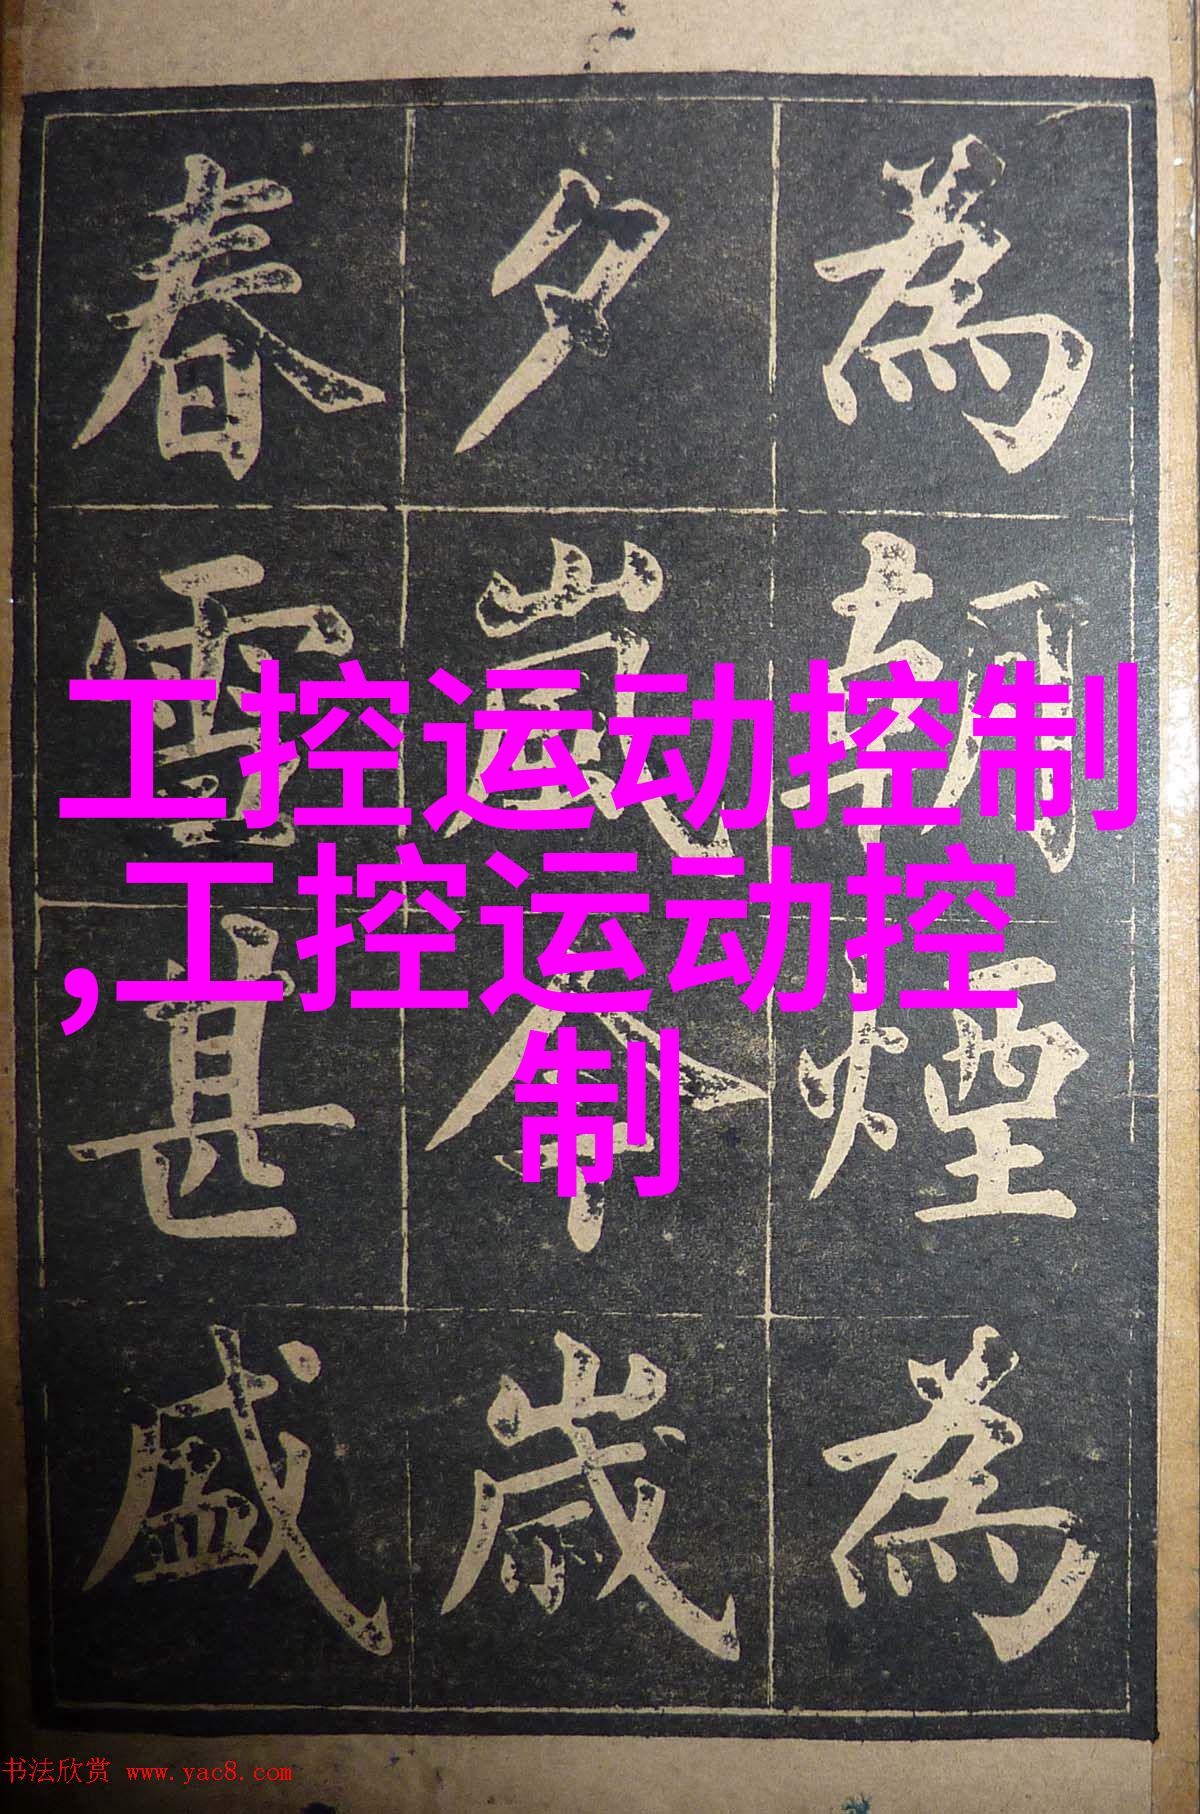 為朝煙為
夕嵐今歲
春雪甚盛
工控运动控制
,工控运动控
制
书法欣赏 www.yac8.com